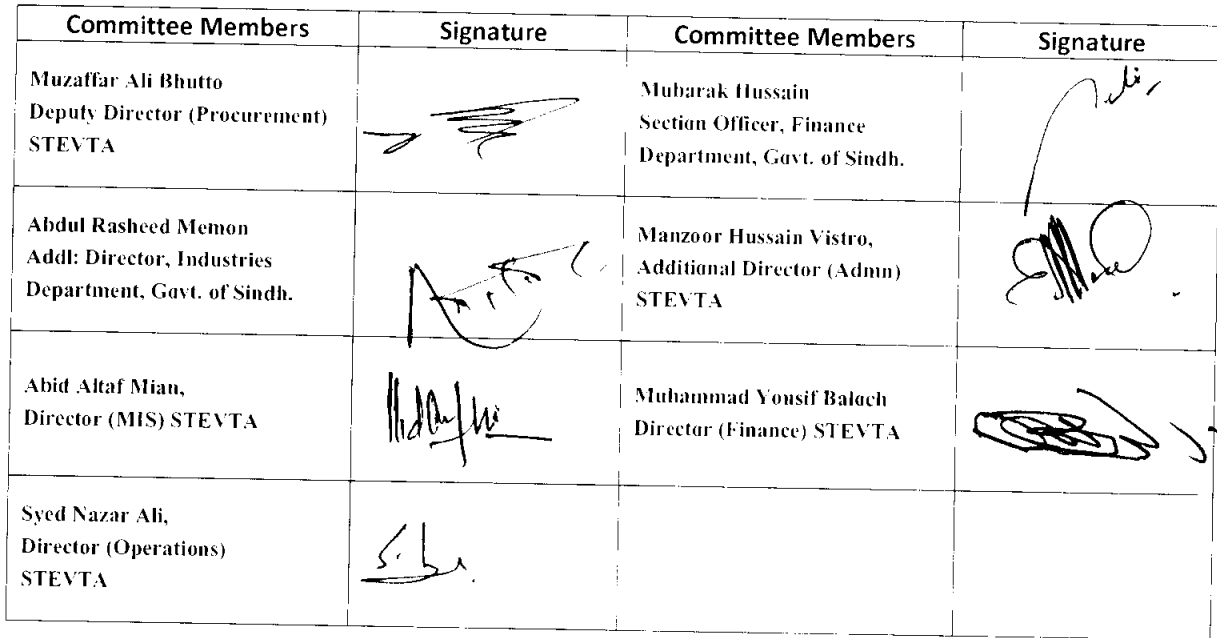 Committee Members Signature Committee Members Signature
Muzaffar Ali Bhutto
Deputy Director (Procurement)
STEVTA
Mubarak Hussain
Section Officer, Finance
Department, Govt. of Sindh.
Abdul Rasheed Memon
Addl: Director, Industries
Department, Govt. of Sindh.
Manzoor Hussain Vistro,
Additional Director (Admn)
STEVTA
Abid Altaf Mian,
Director (MIS) STEVTA
Muhammad Yousif Baloch
Director (Finance) STEVTA
Syed Nazar Ali,
Director (Operations)
STEVTA